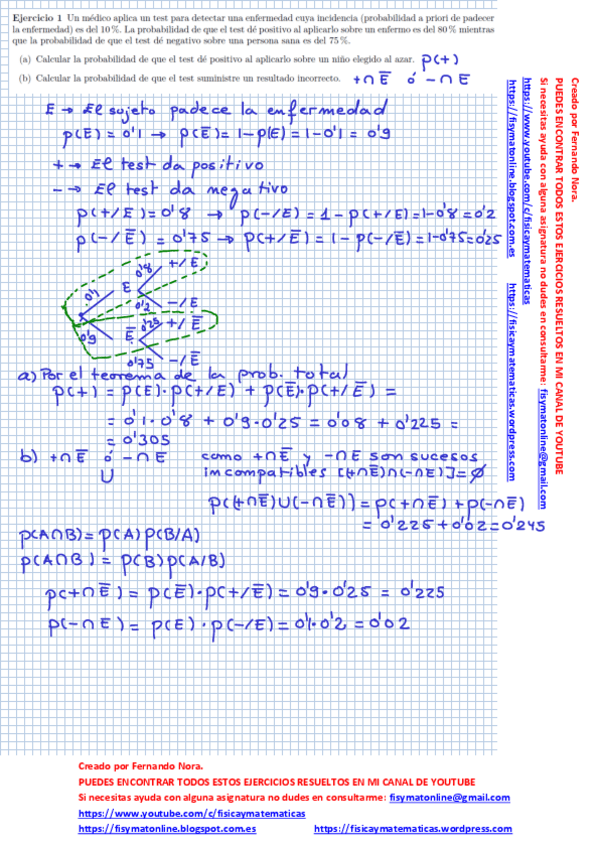 Ejercicio 1 Un médico aplica un test para detectar una enfermedad cuya incidencia (probabilidad a priori de padecer
la enfermedad) es del 10 %. La probabilidad de que el test dé positivo al aplicarlo sobre un enfermo es del 80 % mientras
que la probabilidad de que el test dé negativo sobre una persona sana es del 75 %.
(a) Calcular la probabilidad de que el test dé positivo al aplicarlo sobre un niño elegido al azar. p(+)
(b) Calcular la probabilidad de que el test suministre un resultado incorrecto. +∩E̅ ó -∩E
E → El sujeto padece la enfermedad
p(E) = 0'1 → p(E̅) = 1-p(E) = 1-0'1 = 0'9
+ → El test da positivo
- → El test da negativo
p(+/E) = 0'8 → p(-/E) = 1 - p(+/E) = 1-0'8 = 0'2
p(-/E̅) = 0'75 → p(+/E̅) = 1 - p(-/E̅) = 1-0'75 = 0'25
0'8 +/E
0'1 E
0'2 -/E
0'25 +/E̅
0'9 E̅
0'75 -/E̅
a) Por el teorema de la prob. total
p(+) = p(E)·p(+/E) + p(E̅)·p(+/E̅) =
= 0'1·0'8 + 0'9·0'25 = 0'08 + 0'225 =
= 0'305
b) +∩E̅ ó -∩E como +∩E̅ y -∩E son sucesos
U incompatibles [(+∩E̅)∩(-∩E)] = ∅
p((+∩E̅)U(-∩E̅)) = p(+∩E̅) + p(-∩E)
= 0'225 + 0'02 = 0'245
p(A∩B) = p(A) p(B/A)
p(A∩B) = p(B) p(A/B)
p(+∩E̅) = p(E̅)·p(+/E̅) = 0'9·0'25 = 0'225
p(-∩E) = p(E)·p(-/E) = 0'1·0'2 = 0'02
Creado por Fernando Nora.
PUEDES ENCONTRAR TODOS ESTOS EJERCICIOS RESUELTOS EN MI CANAL DE YOUTUBE
Si necesitas ayuda con alguna asignatura no dudes en consultarme: fisymatonline@gmail.com
https://www.youtube.com/c/fisicaymatematicas
https://fisymatonline.blogspot.com.es https://fisicaymatematicas.wordpress.com
Creado por Fernando Nora.
PUEDES ENCONTRAR TODOS ESTOS EJERCICIOS RESUELTOS EN MI CANAL DE YOUTUBE
Si necesitas ayuda con alguna asignatura no dudes en consultarme: fisymatonline@gmail.com
https://www.youtube.com/c/fisicaymatematicas
https://fisymatonline.blogspot.com.es https://fisicaymatematicas.wordpress.com